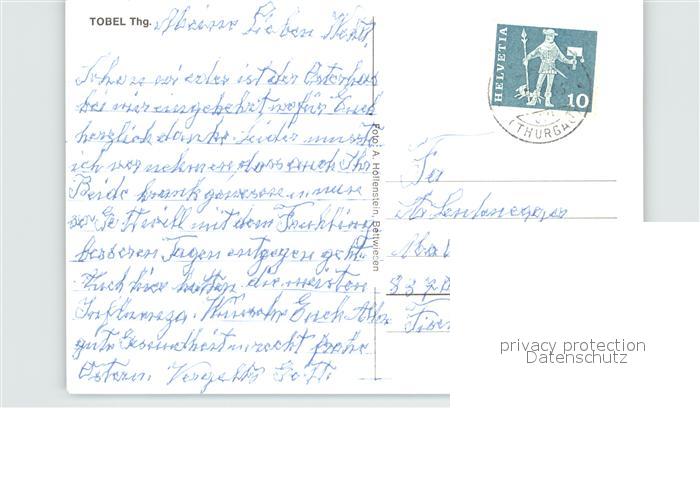 TOBEL Thg.
Meine Lieben
Schon wieder ist der Osterhas
bei mir eingekehrt, wofür Euch
herzlich danke. Leider musst
ich vernehmen dass auch Ihr
Beide krank gewesen u. nun
so Gott will mit dem Frühling
besseren Tagen entgegen geht.
Auch hier hatten die meisten
Influenza. Wünsche Euch Allen
gute Gesundheit u. recht frohe
Ostern. Vergelts Gott.
Foto: A. Hoffenstein, Bettwiesen
HELVETIA
10
(THURGAU)
Fa
8372
privacy protection
Datenschutz